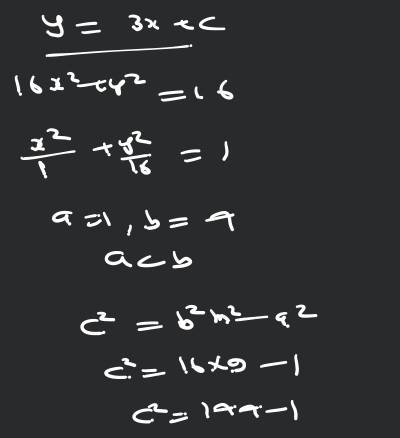 y = 3x + c
16x² + y² = 16
x²/1 + y²/16 = 1
a = 1, b = 4
a < b
c² = b²m² - a²
c² = 16×9 - 1
c² = 144 - 1